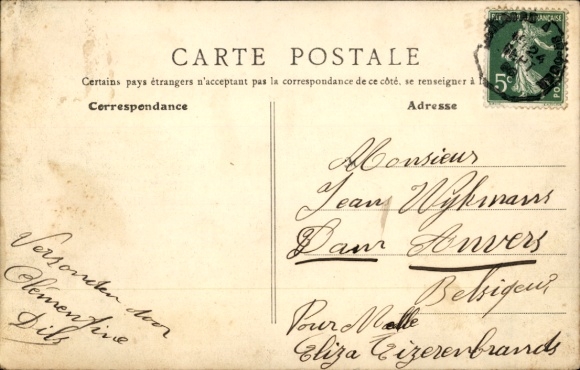 CARTE POSTALE
Certains pays étrangers n'acceptant pas la correspondance de ce côté, se renseigner à la
Correspondance
Adresse
RÉPUBLIQUE FRANÇAISE
5c
POSTES
Monsieur
Jean Wijkmans
Dam Anvers
Belgique
Pour Melle
Eliza Eizerenbrands
Versonden door
Clémentine
Dils